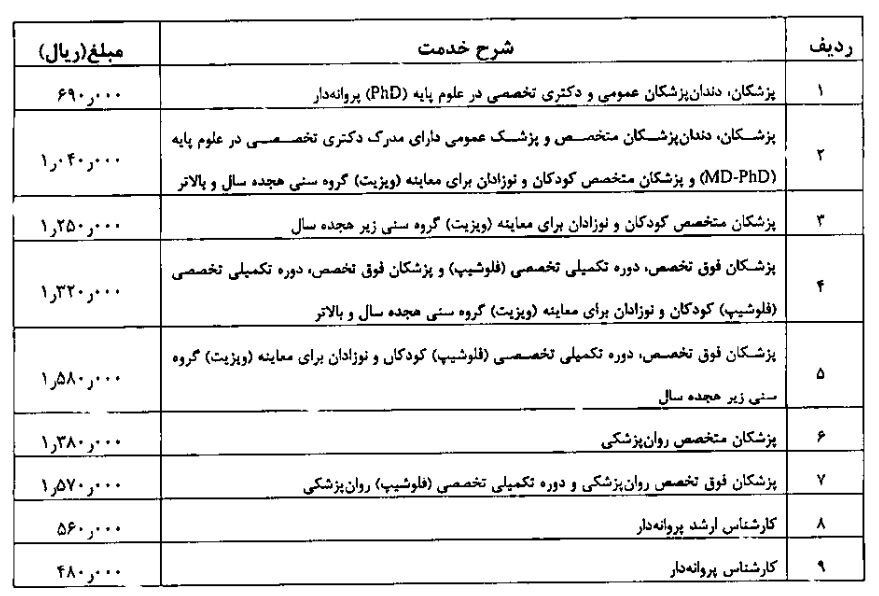 ردیف شرح خدمت مبلغ(ریال)
۱ پزشکان، دندان‌پزشکان عمومی و دکتری تخصصی در علوم پایه (PhD) پروانه‌دار ۶۹۰٫۰۰۰
۲ پزشکان، دندان‌پزشکان متخصص و پزشک عمومی دارای مدرک دکتری تخصصی در علوم پایه
(MD-PhD) و پزشکان متخصص کودکان و نوزادان برای معاینه (ویزیت) گروه سنی هجده سال و بالاتر ۱٫۰۴۰٫۰۰۰
۳ پزشکان متخصص کودکان و نوزادان برای معاینه (ویزیت) گروه سنی زیر هجده سال ۱٫۲۵۰٫۰۰۰
۴ پزشکان فوق تخصص، دوره تکمیلی تخصصی (فلوشیپ) و پزشکان فوق تخصص، دوره تکمیلی تخصصی
(فلوشیپ) کودکان و نوزادان برای معاینه (ویزیت) گروه سنی هجده سال و بالاتر ۱٫۳۲۰٫۰۰۰
۵ پزشکان فوق تخصص، دوره تکمیلی تخصصی (فلوشیپ) کودکان و نوزادان برای معاینه (ویزیت) گروه
سنی زیر هجده سال ۱٫۵۸۰٫۰۰۰
۶ پزشکان متخصص روان‌پزشکی ۱٫۳۸۰٫۰۰۰
۷ پزشکان فوق تخصص روان‌پزشکی و دوره تکمیلی تخصصی (فلوشیپ) روان‌پزشکی ۱٫۵۷۰٫۰۰۰
۸ کارشناس ارشد پروانه‌دار ۵۶۰٫۰۰۰
۹ کارشناس پروانه‌دار ۴۸۰٫۰۰۰